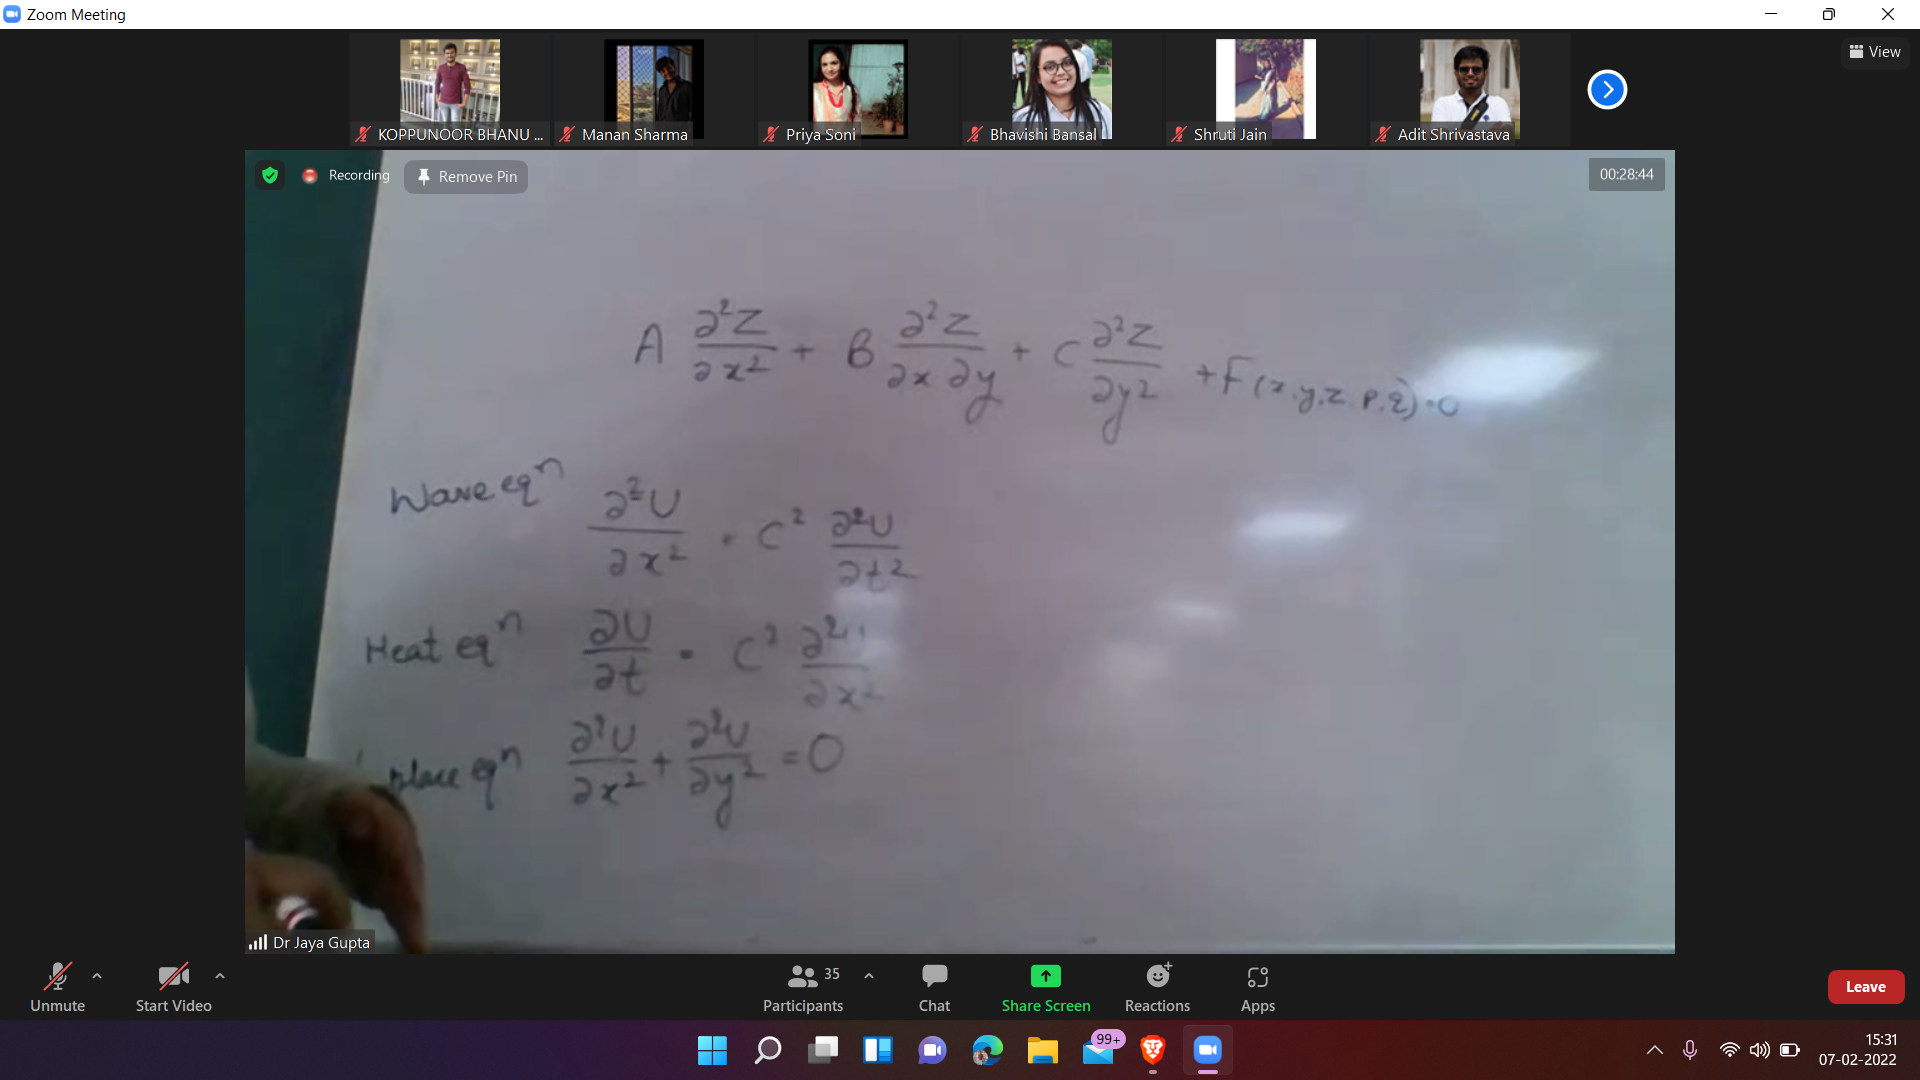 Zoom Meeting
View
KOPPUNOOR BHANU ...
Manan Sharma
Priya Soni
Bhavishi Bansal
Shruti Jain
Adit Shrivastava
Recording
Remove Pin
00:28:44
A ∂²Z/∂x² + B ∂²Z/∂x∂y + C ∂²Z/∂y² + F(x,y,z,p,q)=0
Wave eqⁿ ∂²U/∂x² = C² ∂²U/∂t²
Heat eqⁿ ∂U/∂t = C² ∂²U/∂x²
place eqⁿ ∂²U/∂x² + ∂²U/∂y² = 0
Dr Jaya Gupta
Unmute
Start Video
35
Participants
Chat
Share Screen
Reactions
Apps
Leave
99+
15:31
07-02-2022